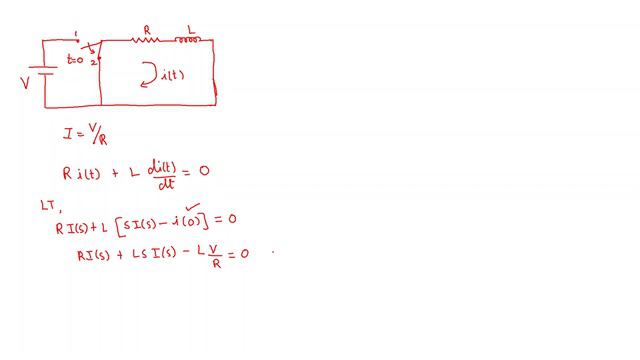 R L
1
t=0 2
V
i(t)
I = V/R
R i(t) + L di(t)/dt = 0
LT,
R I(s) + L [ S I(s) – i(0) ] = 0
R I(s) + L S I(s) – L V/R = 0